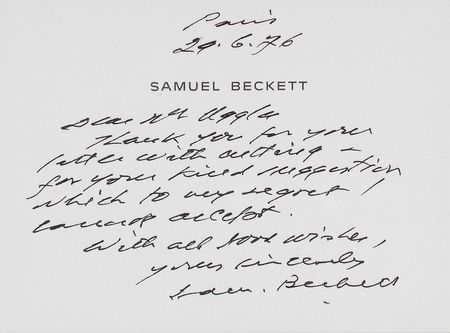 Paris
29.6.76
SAMUEL BECKETT
Dear Mr Uggla
Thank you for your
letter with cutting &
for your kind suggestion
which to my regret I
cannot accept.
With all good wishes,
yours sincerely
Sam. Beckett